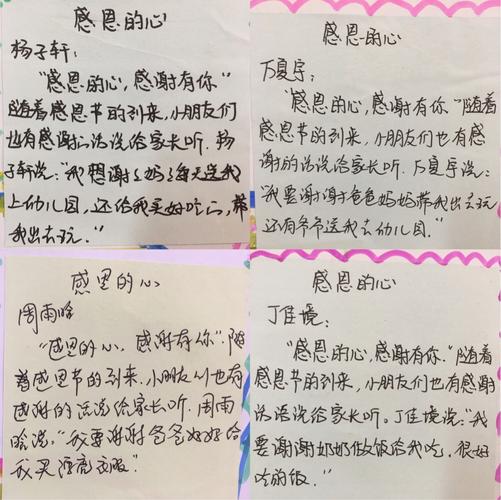 感恩的心
杨子轩：
“感恩的心，感谢有你”
随着感恩节的到来，小朋友们
也有感谢的话说给家长听．杨
子轩说：“我想谢谢妈妈每天送我
上幼儿园，还给我买好吃的，带
我出去玩．”
感恩的心
万夏宇：
“感恩的心，感谢有你”随着
感恩节的到来，小朋友们也有感
谢的话说给家长听．万夏宇说：
“我要谢谢爸爸妈妈带我出去玩
还有爷爷送我去幼儿园．”
感恩的心
周雨晗
“感恩的心，感谢有你”．随
着感恩节的到来，小朋友们也有
感谢的话说给家长听．周雨
晗说，“我要谢谢爸爸妈妈给
我买漂亮衣服”．
感恩的心
丁佳境：
“感恩的心，感谢有你．”随着
感恩节的到来，小朋友们也有感谢
的话说给家长听。丁佳境说：“我
要谢谢奶奶做饭给我吃，很好
吃的饭．”